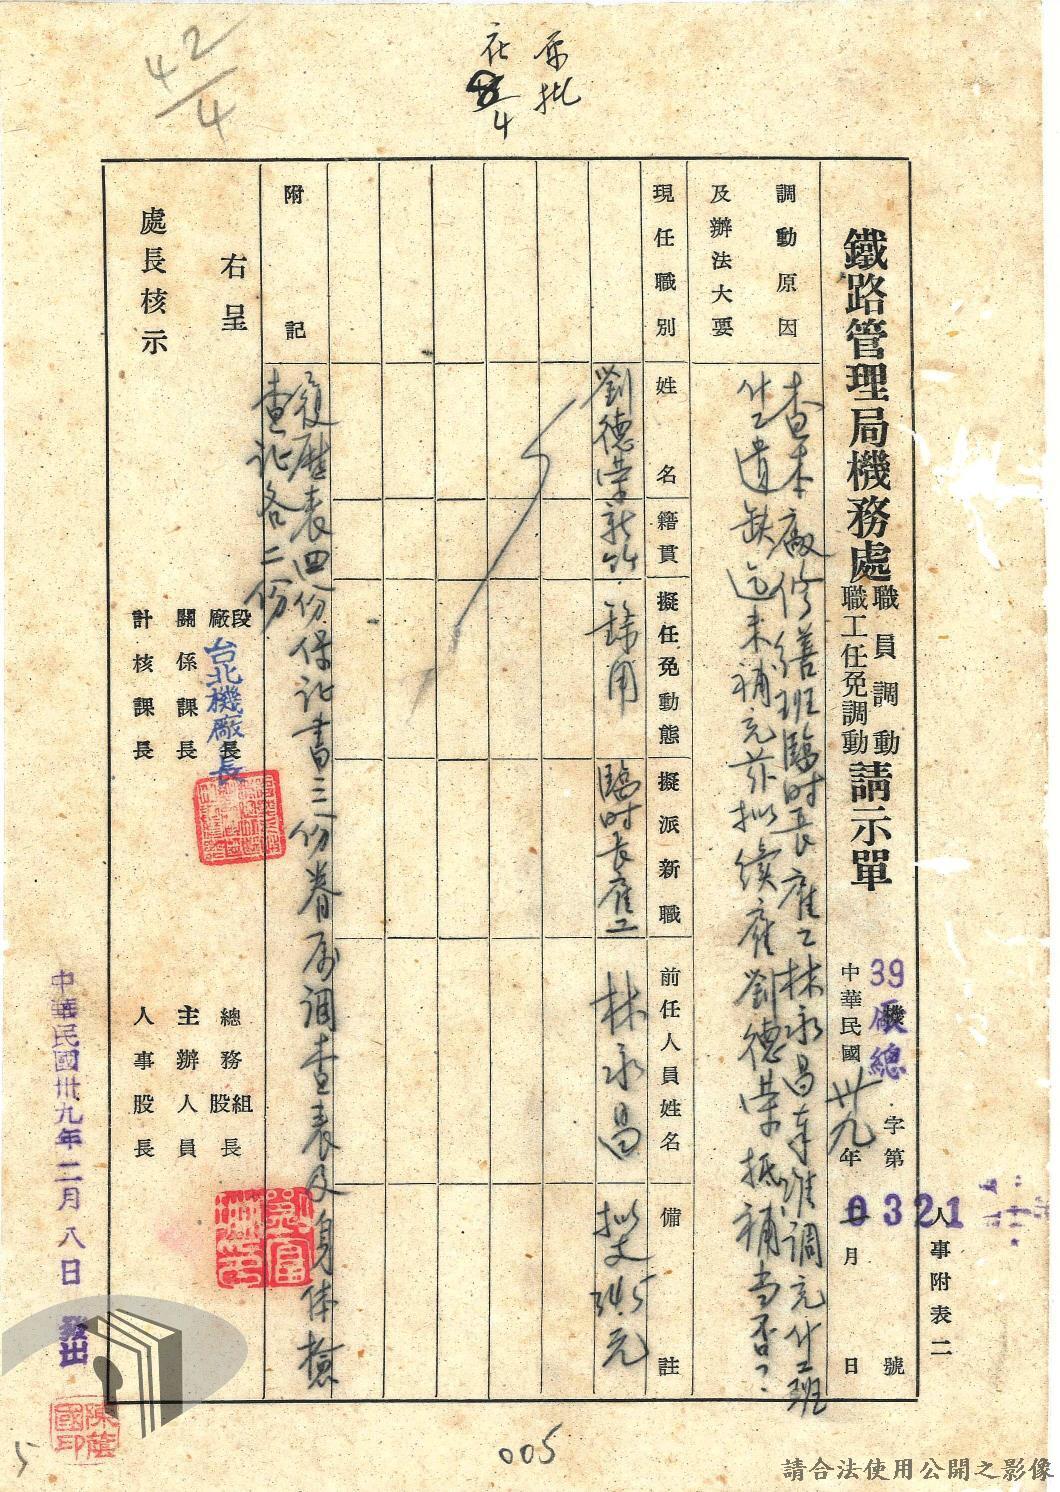 原批
在
8/4
42/4
鐵路管理局機務處職員調動職工任免調動請示單
39
機
廠總
字第0321號
中華民國卅九年二月 日
人事附表二
調動原因
及辦法大要
查本廠修繕班臨时長雇工林永昌奉准調充什工班
什工遺缺迄未補充茲拟續雇劉德荣抵補當否?
現任職別
姓名
籍貫
擬任免動態
擬派新職
前任人員姓名
備註
劉德荣
新竹
錄用
臨时長雇工
林永昌
拟支34.5元
附記
履歷表四份保证書三份眷屬調查表及身体檢
查证各二份
右呈
處長核示
段廠長
台北機廠長
關係課長
計核課長
總務組股長
主辦人員
人事股長
中華民國卅九年二月八日 發出
陳蔭國印
005
5
請合法使用公開之影像